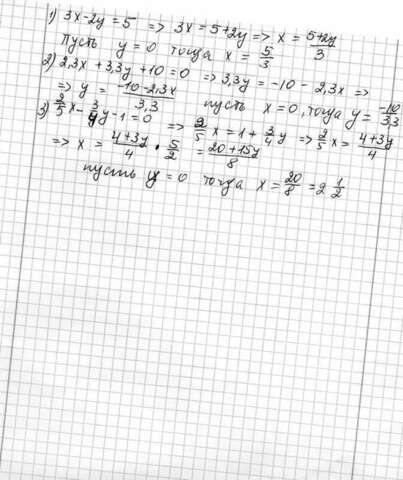 1) 3x-2y=5 => 3x=5+2y => x = (5+2y)/3
Пусть y=0 тогда x = 5/3
2) 2,3x + 3,3y + 10 = 0 => 3,3y = -10 - 2,3x =>
=> y = (-10-2,3x)/3,3 пусть x=0, тогда y = -10/3,3
3) 2/5 x - 3/4 y - 1 = 0 => 2/5 x = 1 + 3/4 y => 2/5 x = (4+3y)/4
=> x = (4+3y)/4 · 5/2 = (20+15y)/8
пусть y = 0 тогда x = 20/8 = 2 1/2